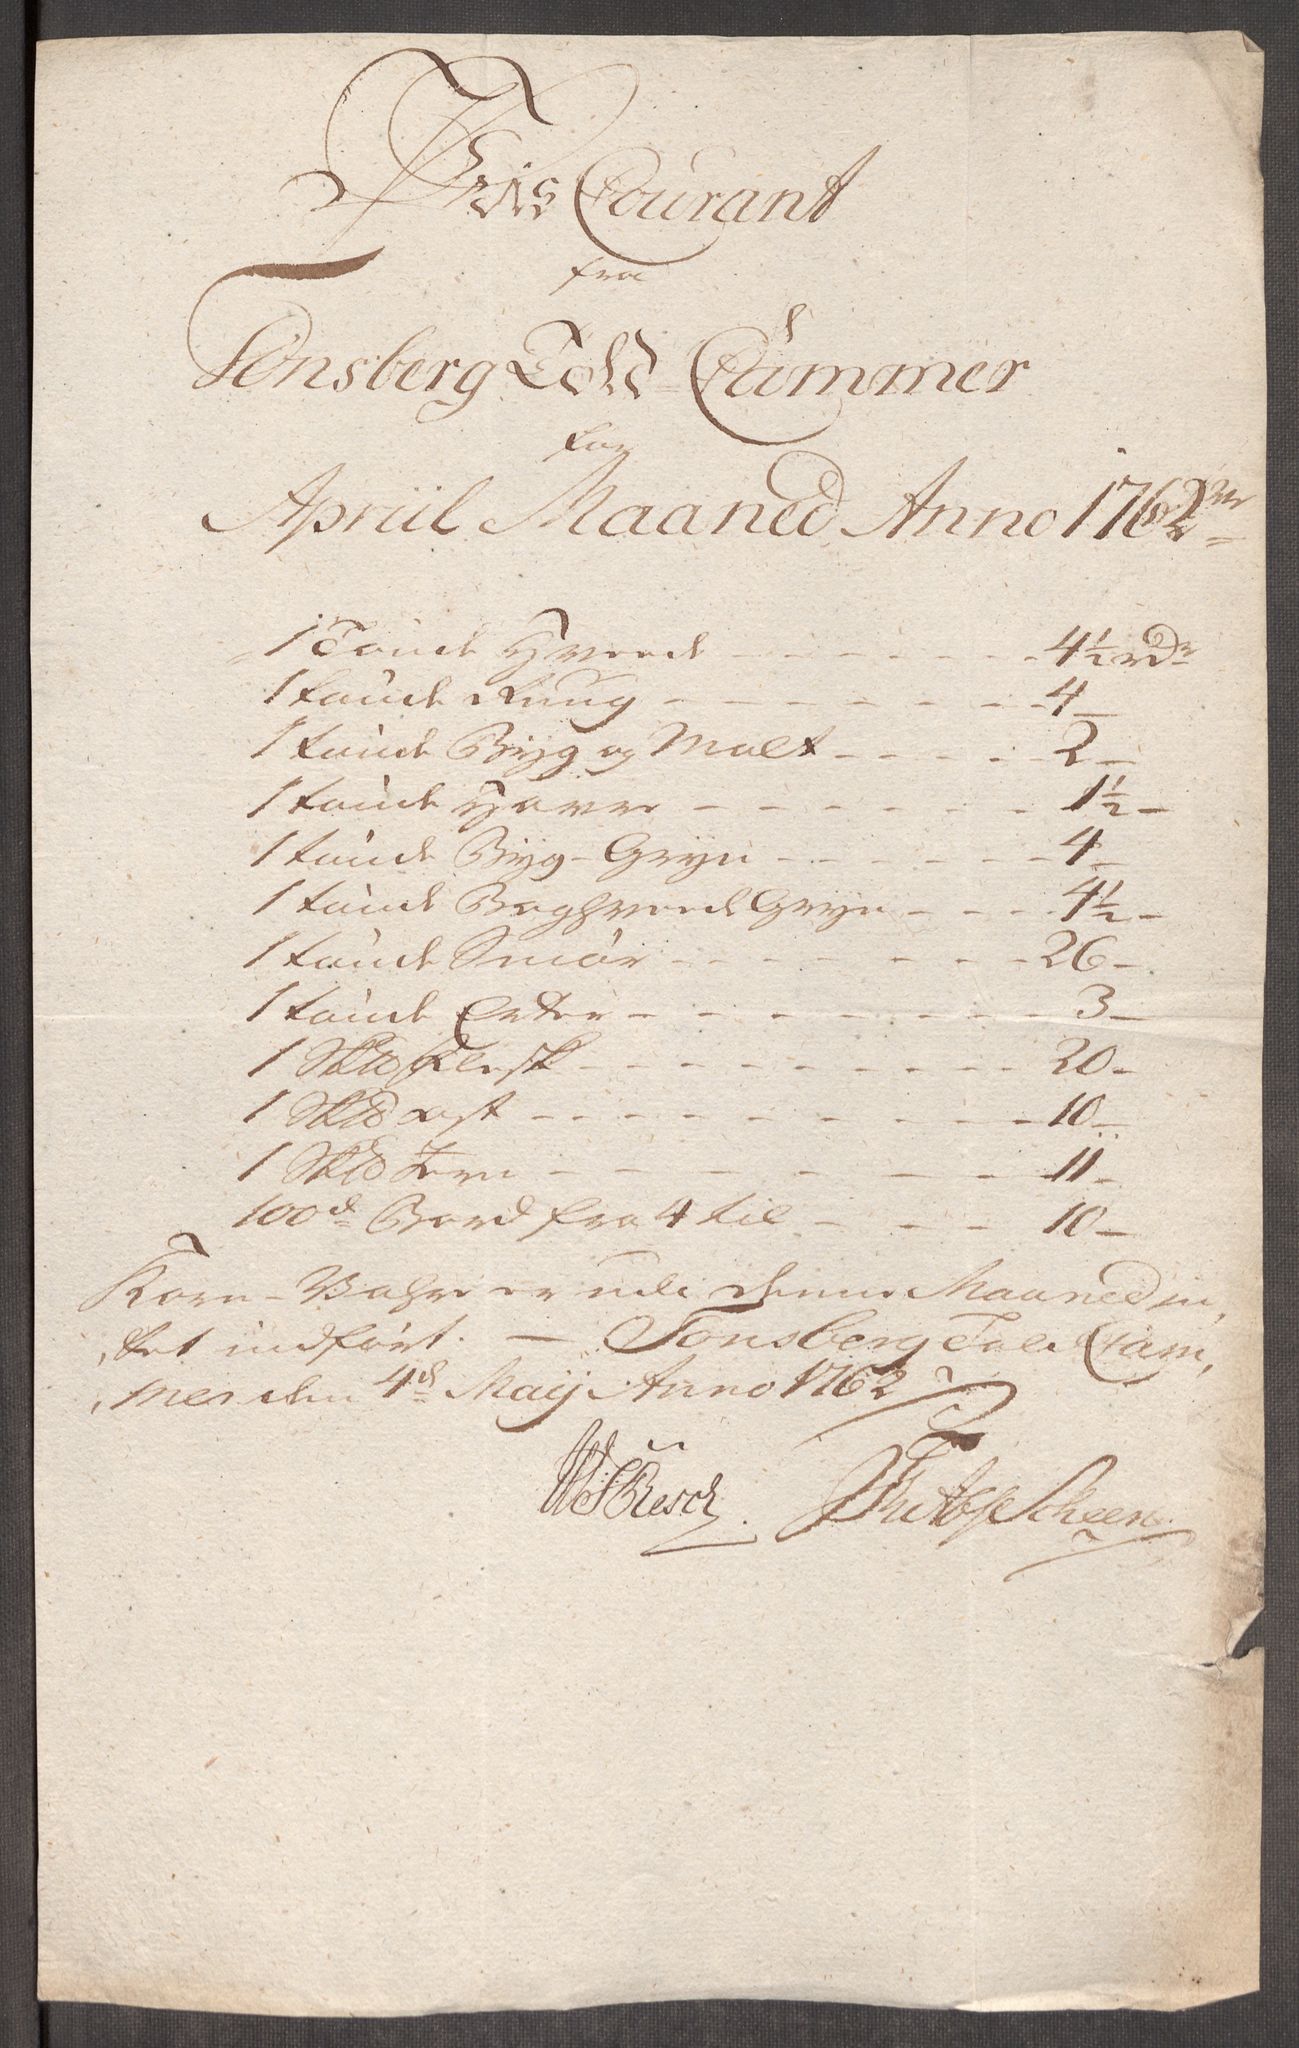 Priis Courant
fra
Tønsberg Told-Cammer
for
Apriil Maaned Anno 1762
1 Tønde Hvede - - - - - - 4½ rdr
1 tønde Ruug - - - - - - - 4 -
1 tønde Byg og Malt - - - - 2 -
1 tønde Havre - - - - - - - 1½ -
1 tønde Byg-Gryn - - - - - 4 -
1 tønde Boghvede Gryn - - - - 4½ -
1 tønde Smør - - - - - - - 26 -
1 tønde Erter - - - - - - - - 3 -
1 Skd Flesk - - - - - - - - 20 -
1 Skd ost - - - - - - - - - 10 -
1 Skd Jern - - - - - - - 11 -
100d Bord fra 4 til - - - - 10 -
Korn-Vahre er udi denne Maaned in,
,tet indført. — Tønsberg Told Cam,
,mer den 4d Maij Anno 1762
Resch Scheen